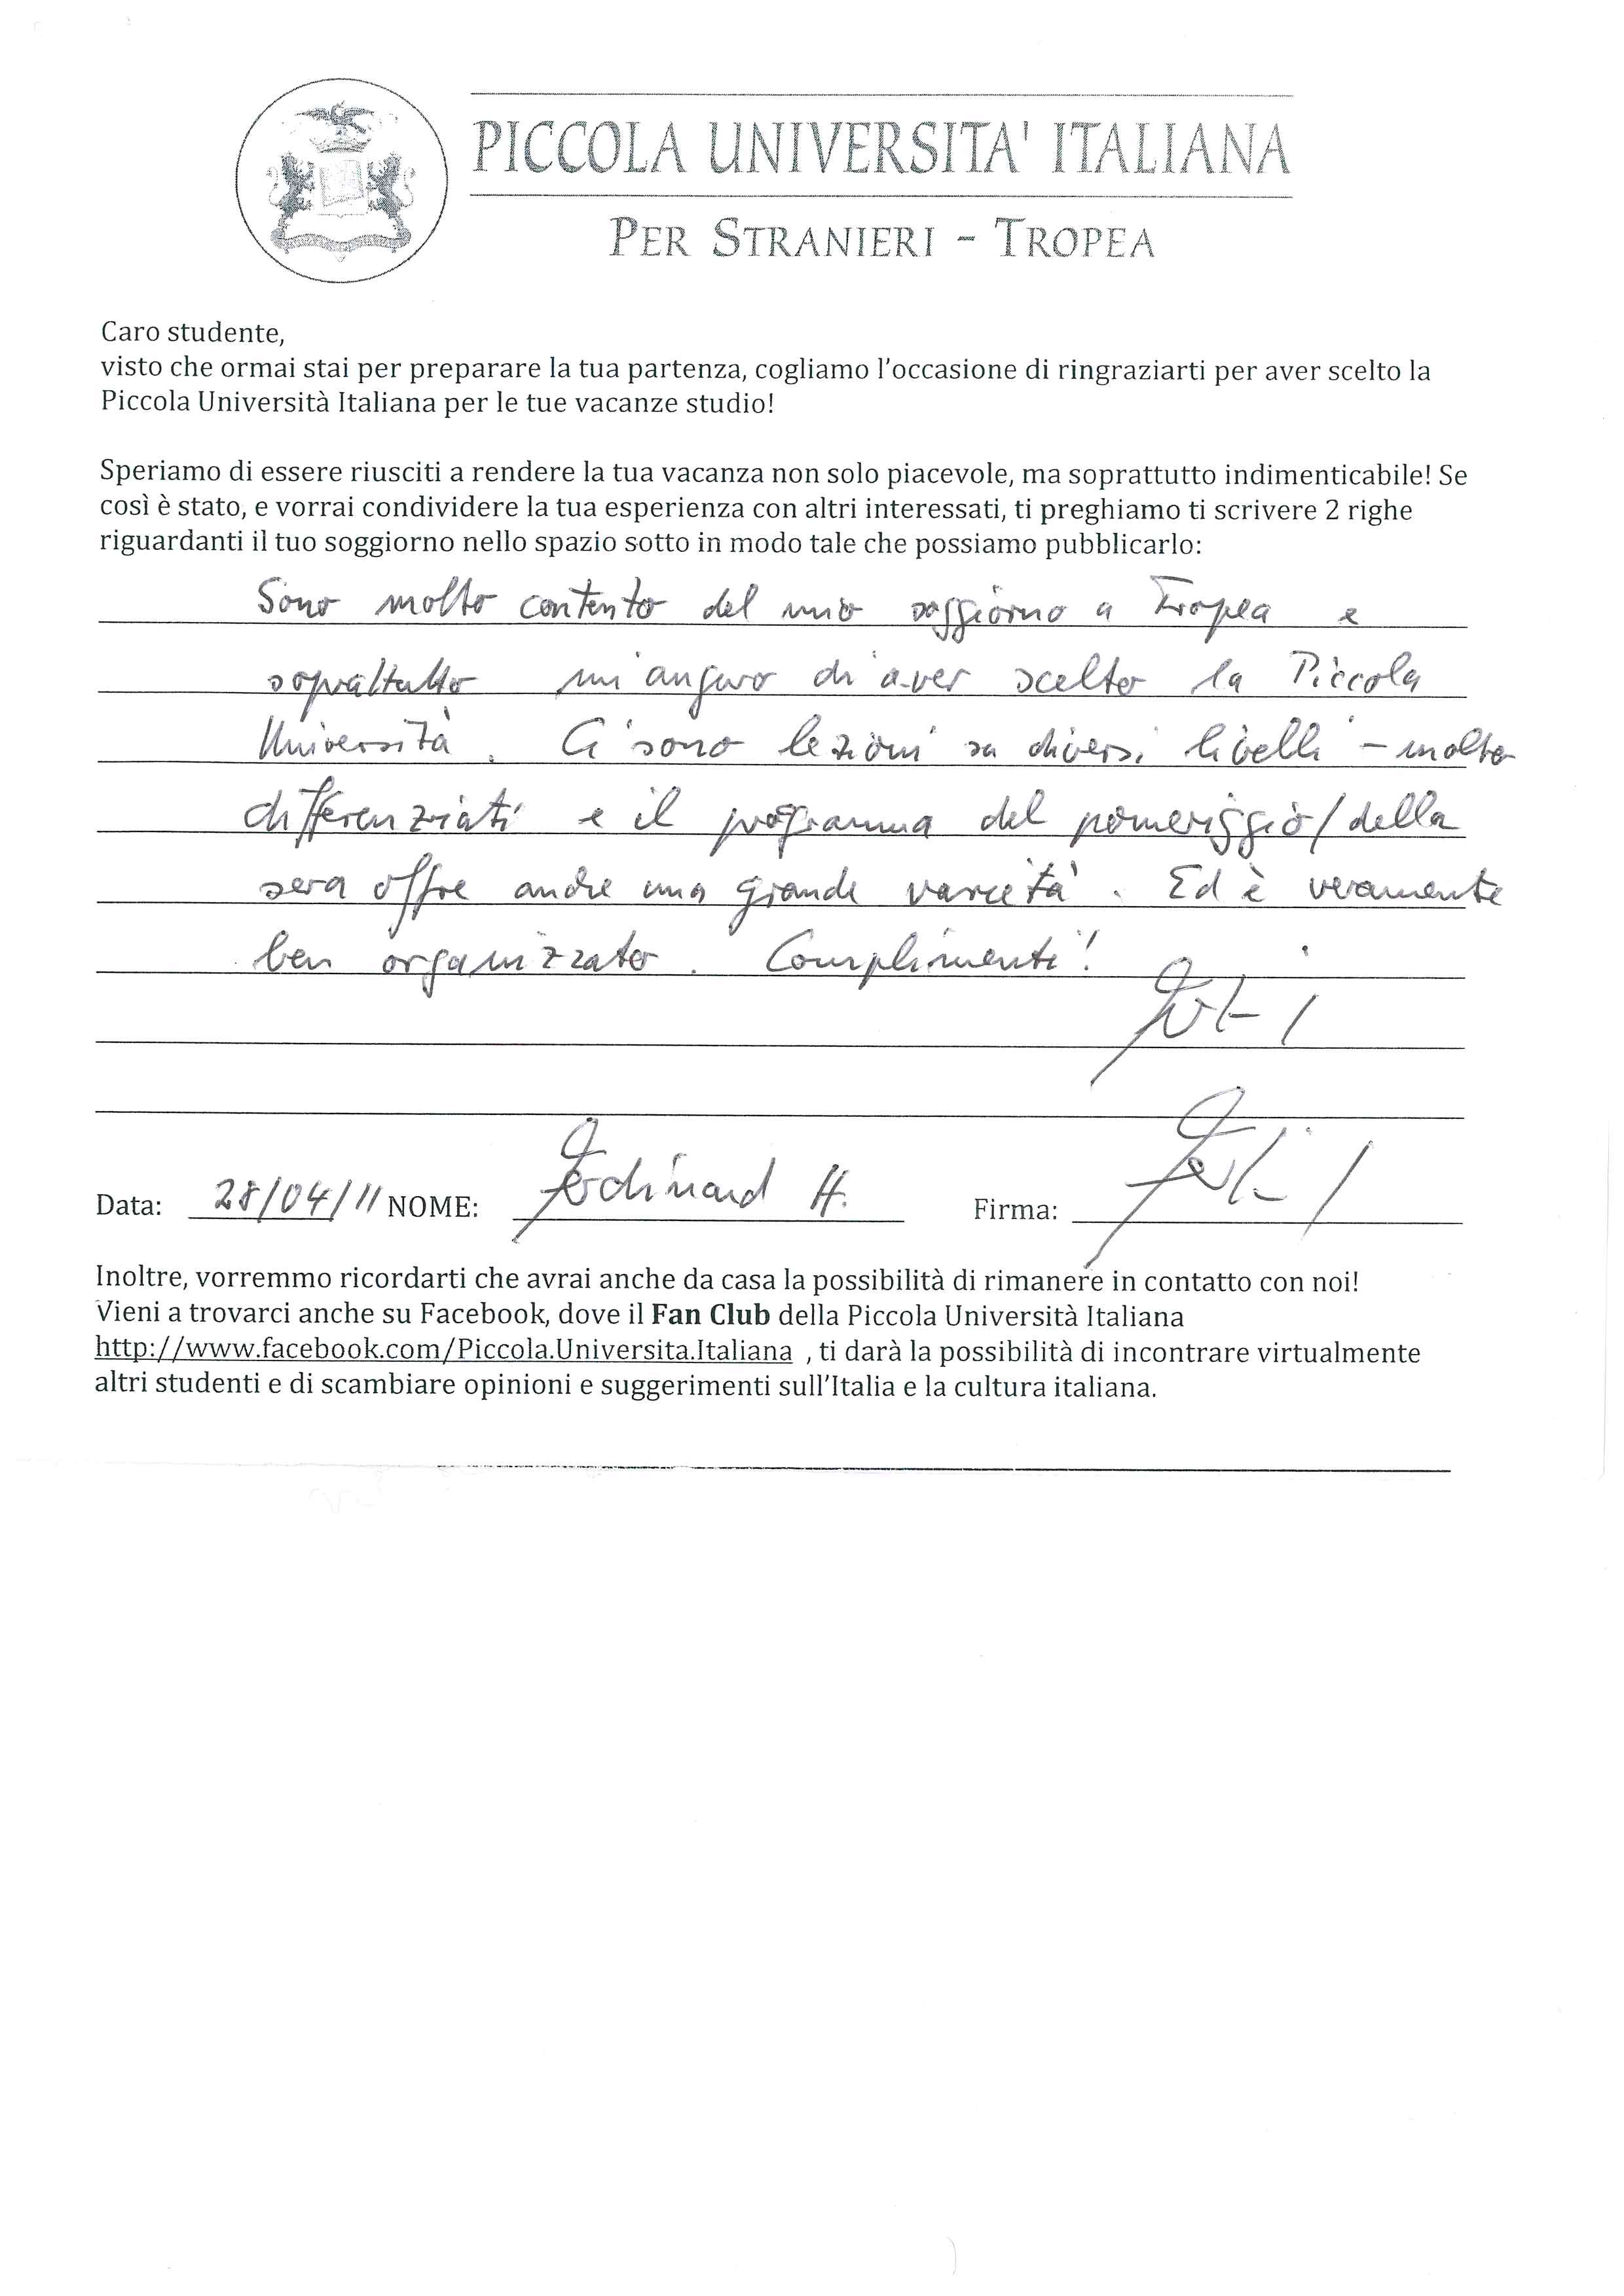 PICCOLA UNIVERSITA' ITALIANA
PER STRANIERI - TROPEA
Caro studente,
visto che ormai stai per preparare la tua partenza, cogliamo l'occasione di ringraziarti per aver scelto la
Piccola Università Italiana per le tue vacanze studio!
Speriamo di essere riusciti a rendere la tua vacanza non solo piacevole, ma soprattutto indimenticabile! Se
così è stato, e vorrai condividere la tua esperienza con altri interessati, ti preghiamo ti scrivere 2 righe
riguardanti il tuo soggiorno nello spazio sotto in modo tale che possiamo pubblicarlo:
Sono molto contento del mio soggiorno a Tropea e
sopraltutto mi auguro di aver scelto la Piccola
Università. Ci sono lezioni su diversi livelli - molto
differenziati e il programma del pomeriggio/della
sera offre anche una grande varietà. Ed è veramente
ben organizzato. Complimenti!
Data: 28/04/11 NOME: Ferdinand H. Firma:
Inoltre, vorremmo ricordarti che avrai anche da casa la possibilità di rimanere in contatto con noi!
Vieni a trovarci anche su Facebook, dove il Fan Club della Piccola Università Italiana
http://www.facebook.com/Piccola.Universita.Italiana , ti darà la possibilità di incontrare virtualmente
altri studenti e di scambiare opinioni e suggerimenti sull'Italia e la cultura italiana.